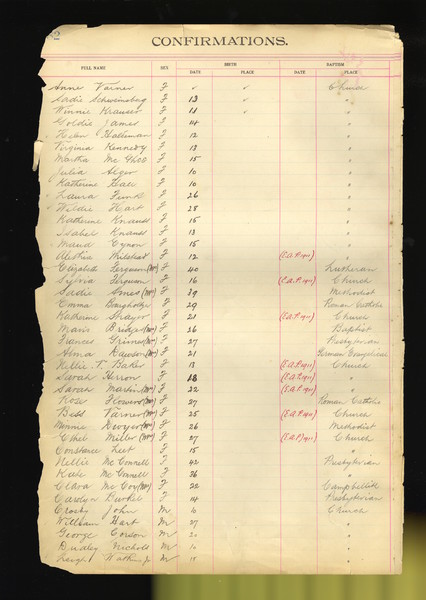 2
CONFIRMATIONS.
BIRTH BAPTISM
FULL NAME SEX DATE PLACE DATE PLACE
Anna Varner F ✓ ✓ Church
Sadie Schweinsberg F 13 ✓ "
Winnie Krauser F 11 ✓ "
Goldie James F 14 "
Helen Halleman F 12 "
Virginia Kennedy F 13 "
Martha F 15 "
Julia Alger F 10 "
Katherine Hall F 10 "
Laura Funk F 26 "
Wildie Hart F 28 "
Katherine Knauss F 15 "
Isabel Knauss F 13 "
Maud Cynon F 15 "
Milstead F 12 (E.A.P. 1911) "
Elizabeth Ferguson (Mrs) F 40 Lutheran
Sylvia Ferguson F 16 (E.A.P. 1911) Church
Sadie Ames (Mrs) F 39 Methodist
Emma F 29 Roman Catholic
Katherine Shayor F 21 (E.A.P. 1911) Church
Maris Bridge (Mrs) F 26 Baptist
Frances Greiner (Mrs) F 27 Presbyterian
Anna Dawson (Mrs) F 21 German Evangelical
Nellie T. Baker F 13 (E.A.P. 1911) Church
Sarah Herron F 18 (E.A.P. 1911) "
Sarah Martin (Mrs) F 22 (E.A.P. 1911) "
Rose Flowers (Mrs) F 27 Roman Catholic
Bess Varner (Mrs) F 25 (E.A.P. 1911) Church
Minnie Dwyer (Mrs) F 26 Methodist
Ethel Miller (Mrs) F 27 (E.A.P.) 1911 Church
Constance Leet F 15 "
Nellie McConnell F 42 Presbyterian
Kate McConnell F 26 "
Clara McCoy (Mrs) F 22 Campbellite
Carolyn Burket F 14 Presbyterian
Crosby John M Church
William Hart M 27 "
George Corson M "
Dudley Nichols M "
Leigh Watkins Jr M "